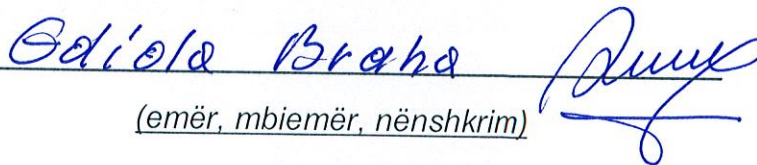 Odiola Braha
(emër, mbiemër, nënshkrim)